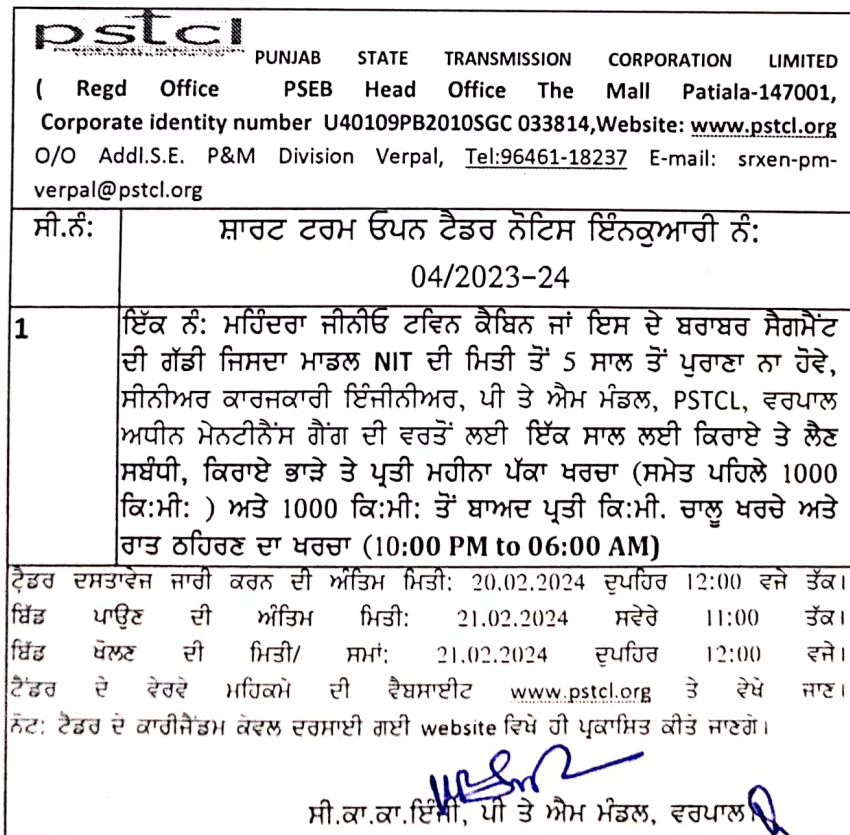 pstcl
PUNJAB STATE TRANSMISSION CORPORATION LIMITED
( Regd Office PSEB Head Office The Mall Patiala-147001,
Corporate identity number U40109PB2010SGC 033814,Website: www.pstcl.org
O/O Addl.S.E. P&M Division Verpal, Tel:96461-18237 E-mail: srxen-pm-
verpal@pstcl.org
ਸੀ.ਨੰ: ਸ਼ਾਰਟ ਟਰਮ ਓਪਨ ਟੈਡਰ ਨੋਟਿਸ ਇੰਨਕੁਆਰੀ ਨੰ:
04/2023-24
1 ਇੱਕ ਨੰ: ਮਹਿੰਦਰਾ ਜੀਨੀਓ ਟਵਿਨ ਕੈਬਿਨ ਜਾਂ ਇਸ ਦੇ ਬਰਾਬਰ ਸੈਗਮੈਂਟ
ਦੀ ਗੱਡੀ ਜਿਸਦਾ ਮਾਡਲ NIT ਦੀ ਮਿਤੀ ਤੋਂ 5 ਸਾਲ ਤੋਂ ਪੁਰਾਣਾ ਨਾ ਹੋਵੇ,
ਸੀਨੀਅਰ ਕਾਰਜਕਾਰੀ ਇੰਜੀਨੀਅਰ, ਪੀ ਤੇ ਐਮ ਮੰਡਲ, PSTCL, ਵਰਪਾਲ
ਅਧੀਨ ਮੇਨਟੀਨੈਂਸ ਗੈਂਗ ਦੀ ਵਰਤੋਂ ਲਈ ਇੱਕ ਸਾਲ ਲਈ ਕਿਰਾਏ ਤੇ ਲੈਣ
ਸਬੰਧੀ, ਕਿਰਾਏ ਭਾੜੇ ਤੇ ਪ੍ਰਤੀ ਮਹੀਨਾ ਪੱਕਾ ਖਰਚਾ (ਸਮੇਤ ਪਹਿਲੇ 1000
ਕਿ:ਮੀ: ) ਅਤੇ 1000 ਕਿ:ਮੀ: ਤੋਂ ਬਾਅਦ ਪ੍ਰਤੀ ਕਿ:ਮੀ. ਚਾਲੂ ਖਰਚੇ ਅਤੇ
ਰਾਤ ਠਹਿਰਣ ਦਾ ਖਰਚਾ (10:00 PM to 06:00 AM)
ਟੈਡਰ ਦਸਤਾਵੇਜ ਜਾਰੀ ਕਰਨ ਦੀ ਅੰਤਿਮ ਮਿਤੀ: 20.02.2024 ਦੁਪਹਿਰ 12:00 ਵਜੇ ਤੱਕ।
ਬਿੱਡ ਪਾਉਣ ਦੀ ਅੰਤਿਮ ਮਿਤੀ: 21.02.2024 ਸਵੇਰੇ 11:00 ਤੱਕ।
ਬਿੱਡ ਖੋਲਣ ਦੀ ਮਿਤੀ/ ਸਮਾਂ: 21.02.2024 ਦੁਪਹਿਰ 12:00 ਵਜੇ।
ਟੈਂਡਰ ਦੇ ਵੇਰਵੇ ਮਹਿਕਮੇ ਦੀ ਵੈਬਸਾਈਟ www.pstcl.org ਤੇ ਵੇਖੇ ਜਾਣ।
ਨੋਟ: ਟੈਡਰ ਦੇ ਕਾਰੀਜੈਂਡਮ ਕੇਵਲ ਦਰਸਾਈ ਗਈ website ਵਿਖੇ ਹੀ ਪ੍ਰਕਾਸ਼ਿਤ ਕੀਤੇ ਜਾਣਗੇ।
ਸੀ.ਕਾ.ਕਾ.ਇੰਜੀ, ਪੀ ਤੇ ਐਮ ਮੰਡਲ, ਵਰਪਾਲ।